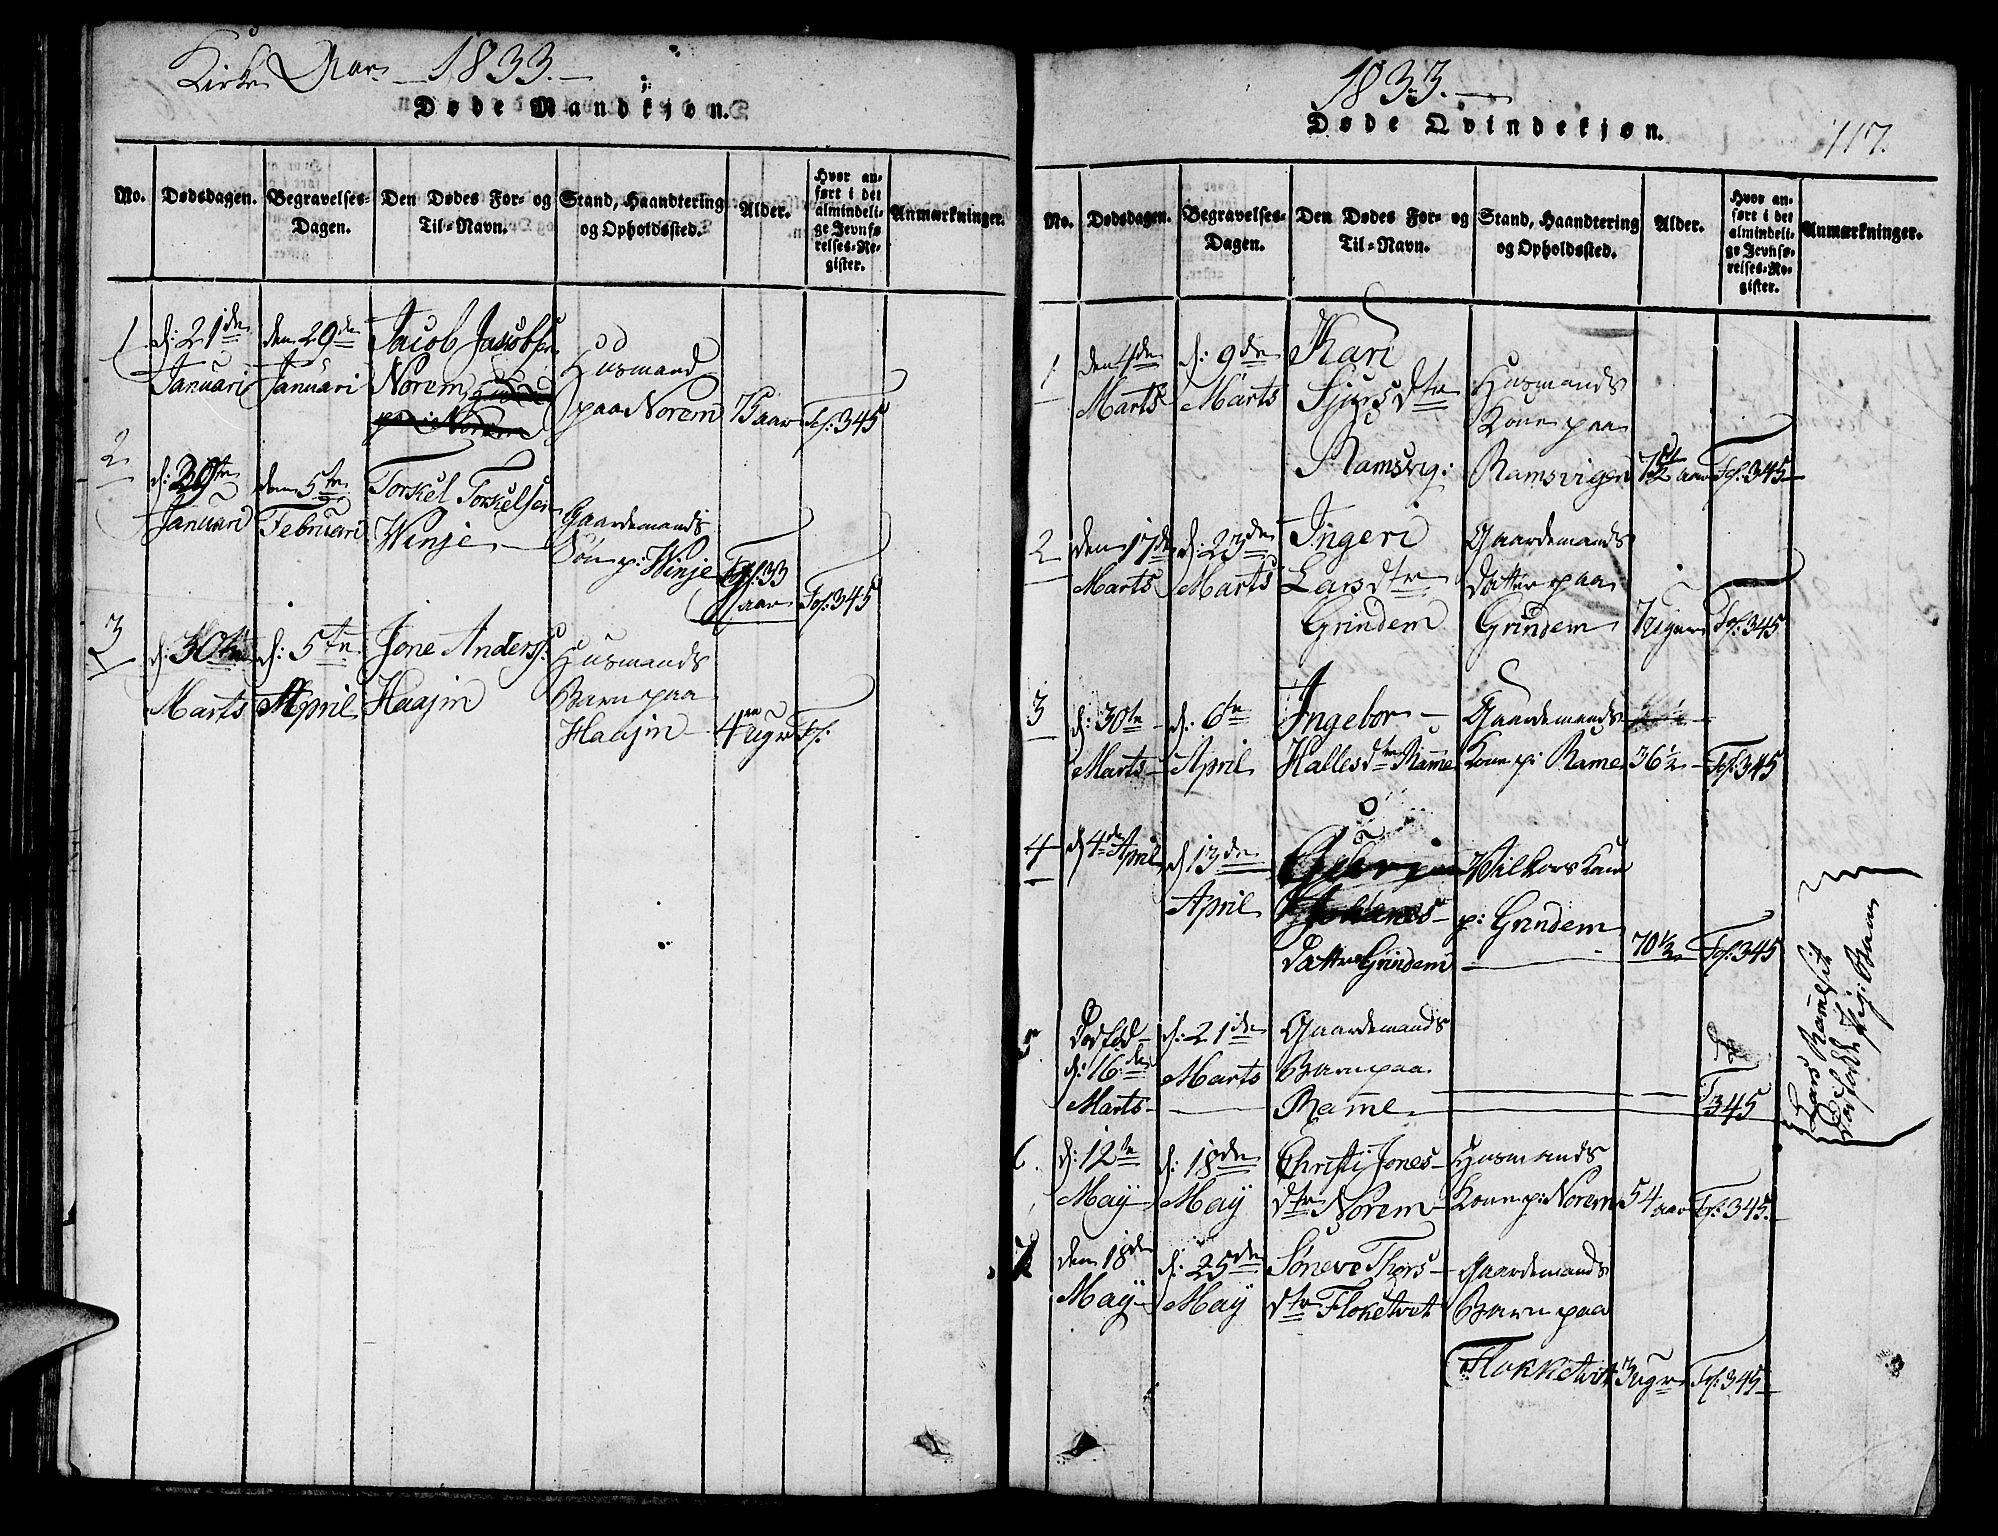 Kirke Aar 1833.
Døde Mandkjøn.
No. Dødsdagen. Begravelses-Dagen. Den Dødes For- og Til-Navn. Stand, Haandtering og Opholdssted. Alder. Hvor anført i det almindelige Jevnførelses-Register. Anmærkninger.
1
d: 21de Januari
den 29de Januari
Jacob Jacobsen
Norem
paa Norem
Husmand
paa Norem
75 aar
Fol: 345
2
d: 20te Januari
den 5te Februari
Torkel Torkelsen
Winje
Gaardemands
Søn p: Winje
33
aar
Fol: 345
3
d: 30te
Marts
d: 5te
April
Jone Anders:
Haajm
Husmands
Barn paa
Haajm
4 Ugr
Fol:
1833.
Døde Qvindekjøn.
117.
No. Dødsdagen. Begravelses-Dagen. Den Dødes For- og Til-Navn. Stand, Haandtering og Opholdssted. Alder. Hvor anført i det almindelige Jevnførelses-Register. Anmærkninger.
1
den 4de
Marts
d: 9de
Marts
Kari
Sjurs dtr
Ramsvig:
Husmands
Kone paa
Ramsvigen
aar
Fol: 345
2
den 17de
Marts
d: 23de
Marts
Ingeri
Lars dtr
Grindem
Gaardemands
Datter paa
Grindem
7 Ugar
Fol: 345
3
d: 30te
Marts
d: 6te
April
Ingebor
Halles dtr Ramme
Gaardemands
Kone p: Rame
36½
Fol: 345
4
d 4de April
d 13de
April
Johanes
Datter Grindem
Wilkors Kone
p: Grindem
70½
Fol: 345
5
Dødfød
d: 16de
Marts
d: 21de
Marts
Gaardemands
Barn paa
Ramme
345
Lars
Dødfødte Pig: Barn
6.
d: 12te
May
d: 18de
May
Christi Jones
dtr Norem
Husmands
Kone p: Norem
54 aar
Fol: 345.
7
den 18de
May
d: 25de
May
Søneve Thors
dtr Floketvet
Gaardemands
Barn paa
Flokketvet
3 Ugr
Fol: 345